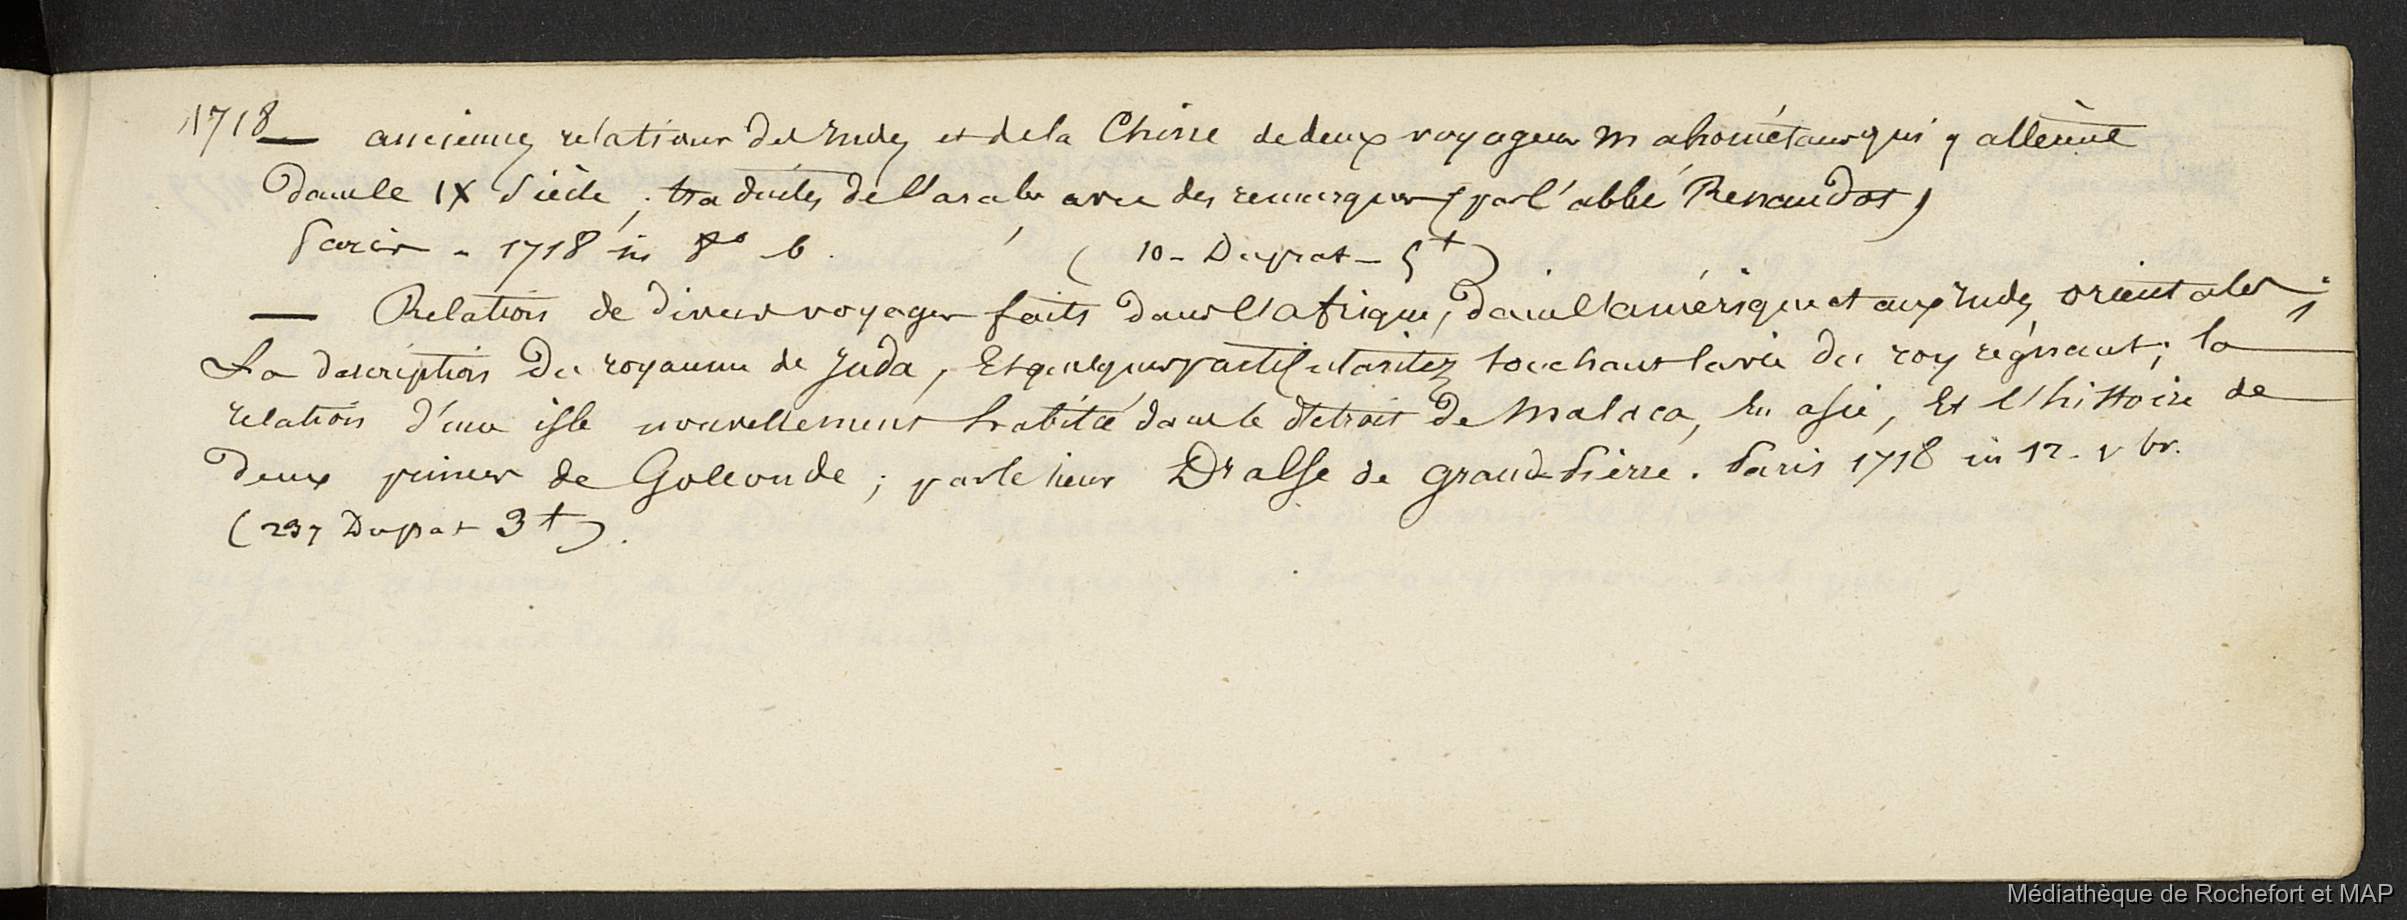 1718 — anciennes relations des Indes et de la Chine de deux voyageurs mahométans qui y allèrent
dans le IX siècle ; traduites de l'arabe avec des remarques (par l'abbé Renaudot)
Paris - 1718 in 8° b. ( 10 - Duprat - 5 )
— Relation de divers voyages faits dans l'afrique, dans l'amérique et aux Indes orientales ;
La description du royaume de Juda, Et quelques particularitez touchant la vie du roy régnant ; la
relation d'une isle nouvellement habitée dans le détroit de Malaca, En asie, Et l'histoire de
deux princes de Golconde ; par le sieur Dralse de grand-Pierre. Paris 1718 in 12 - v br.
(237 Duprat 3 ).
Médiathèque de Rochefort et MAP